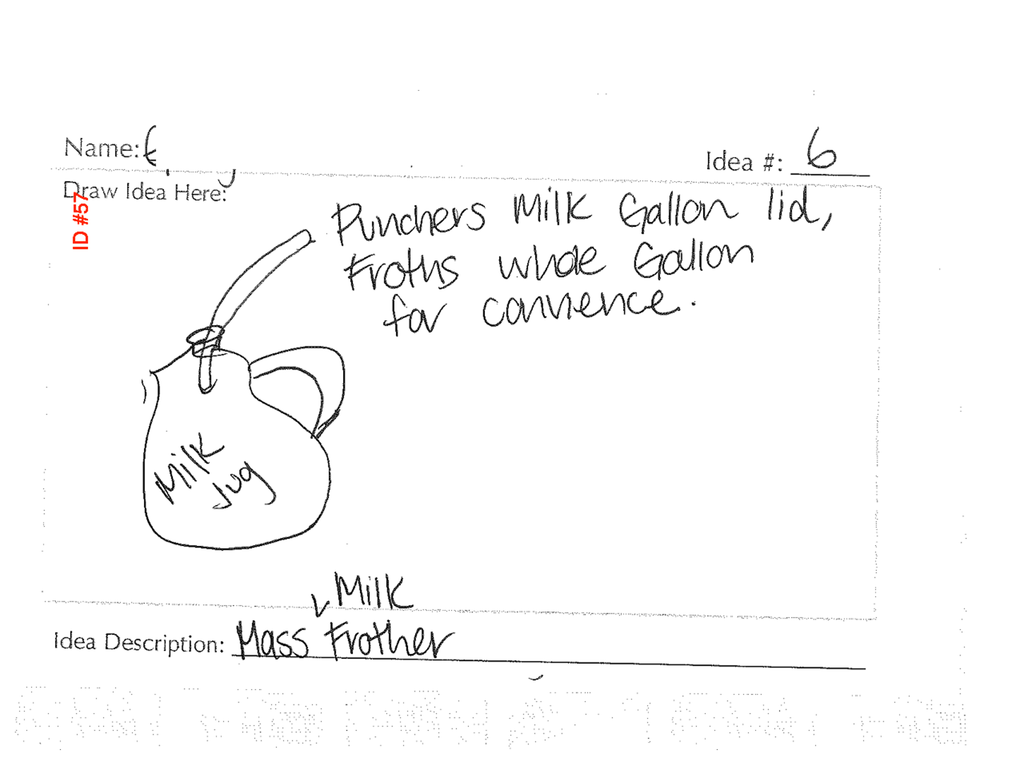 Name:
Idea #: 6
Draw Idea Here:
ID #57
Punchers Milk Gallon lid,
Froths whole Gallon
for convience.
Milk
Jug
Milk
Idea Description: Mass Frother